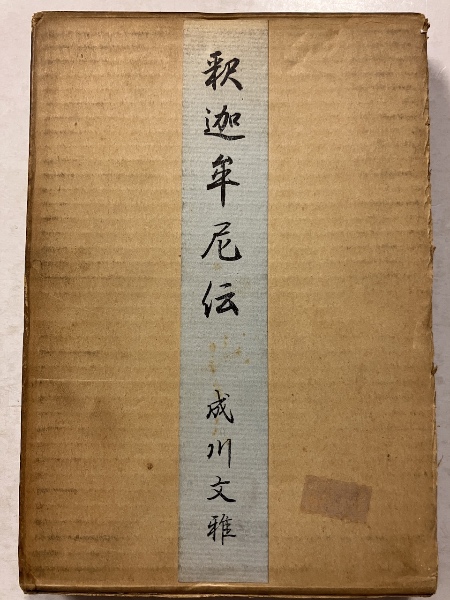 釈迦牟尼伝
成川文雅